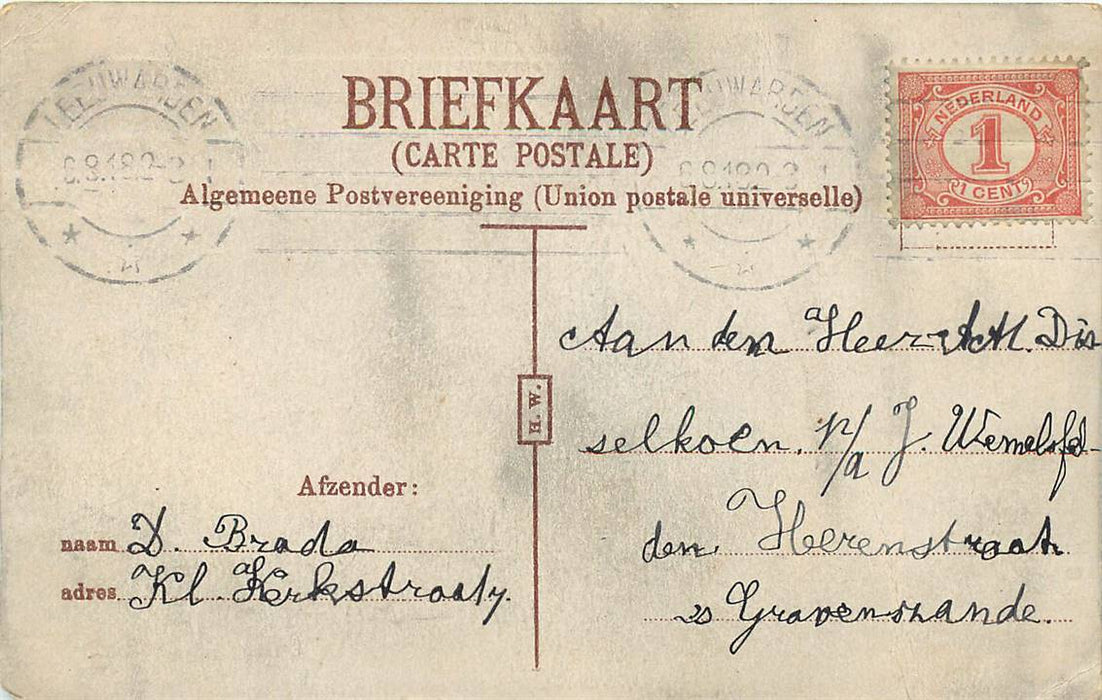 BRIEFKAART
(CARTE POSTALE)
Algemeene Postvereeniging (Union postale universelle)
LEEUWARDEN
LEEUWARDEN
NEDERLAND
1
1 CENT
H. W.
Aan den Heer A.M. Dis
selkoen. p/a J. Wemelsfel-
der. Herenstraat
's Gravenzande.
Afzender:
naam D. Brada
adres Kl. Kerkstraat 7.